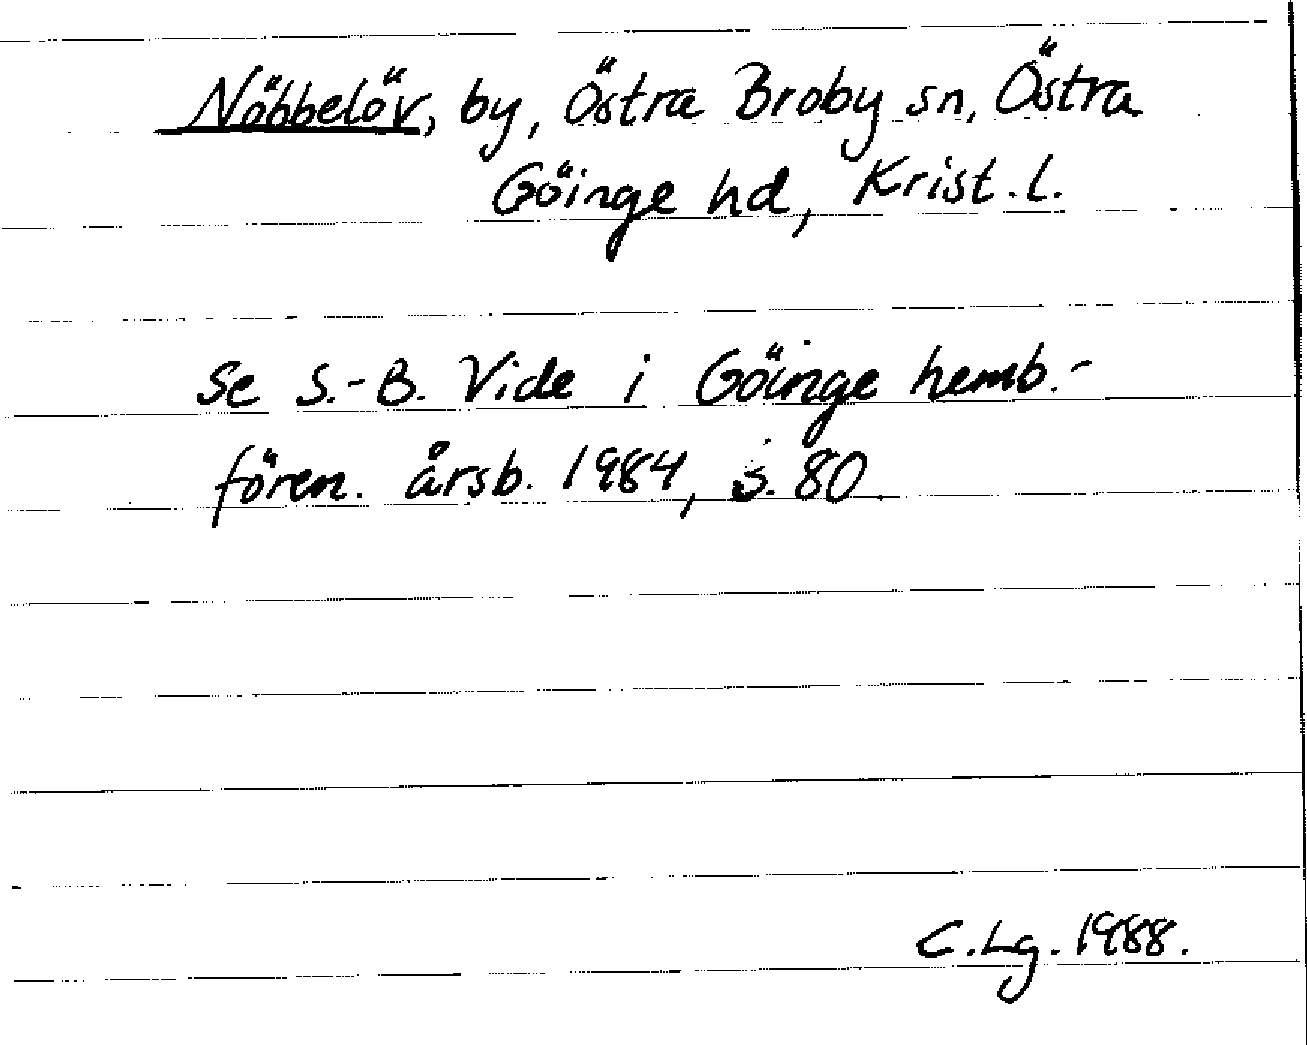 Nöbbelöv, by, Östra Broby sn, Östra
Göinge hd, Krist. l.
Se S.-B. Vide i Göinge hemb.-
fören. årsb. 1984, s. 80.
C. Lg. 1988.